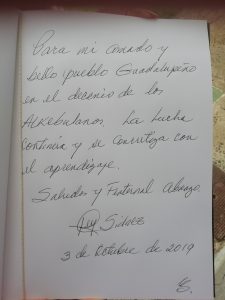 Para mi amado y
bello pueblo Guadalupeño
en el decenio de los
Alkebulanos. La lucha
continúa y se concretiza con
el aprendizaje.
Saludos y Fraternal Abrazo
3 de Octubre de 2019